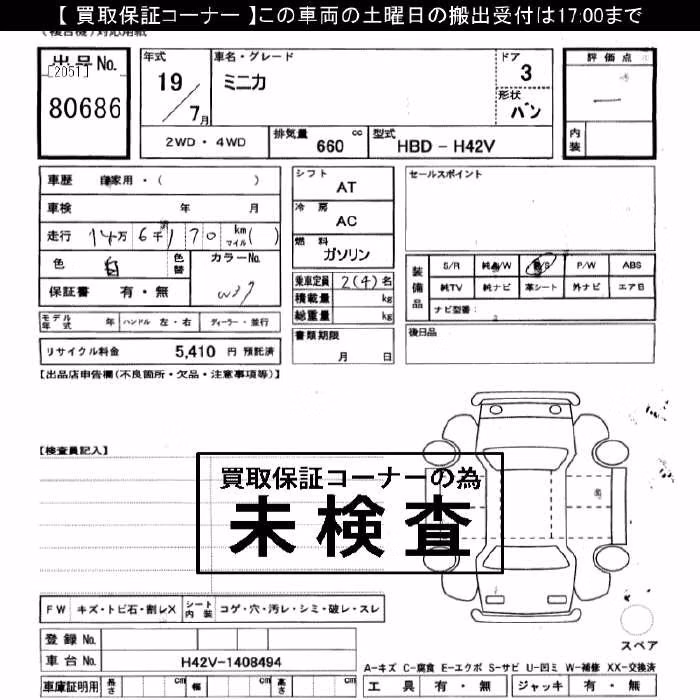 【 買取保証コーナー 】この車両の土曜日の搬出受付は17:00まで
出品No.
[2051]
80686
年式
19／7月
車名・グレード
ミニカ
ドア
3
形状
バン
評価点
内装
2WD・4WD
排気量 660 cc
型式 HBD - H42V
車歴 自家用・( )
車検 年 月
走行 14万6千170 km マイル( )
色 白
色替
カラーNo.
W37
保証書 有・無
シフト
AT
冷房
AC
燃料
ガソリン
乗車定員 2(4)名
積載量 kg
総重量 kg
書類期限
月 日
セールスポイント
装備品
S/R 純A/W P/S P/W ABS
純TV 純ナビ 革シート 外ナビ エアB
ナビ型番:
後日品
モデル年式 年 ハンドル 左・右 ディーラー・並行
リサイクル料金 5,410 円 預託済
【出品店申告欄(不良箇所・欠品・注意事項等)】
【検査員記入】
買取保証コーナーの為
未検査
FW キズ・トビ石・割レX シート内装 コゲ・穴・汚レ・シミ・破レ・スレ
登録No.
車台No. H42V-1408494
車庫証明用 長さ cm 幅 cm 高さ cm
スペア
A-キズ C-腐食 E-エクボ S-サビ U-凹ミ W-補修 XX-交換済
工具 有・無 ジャッキ 有・無